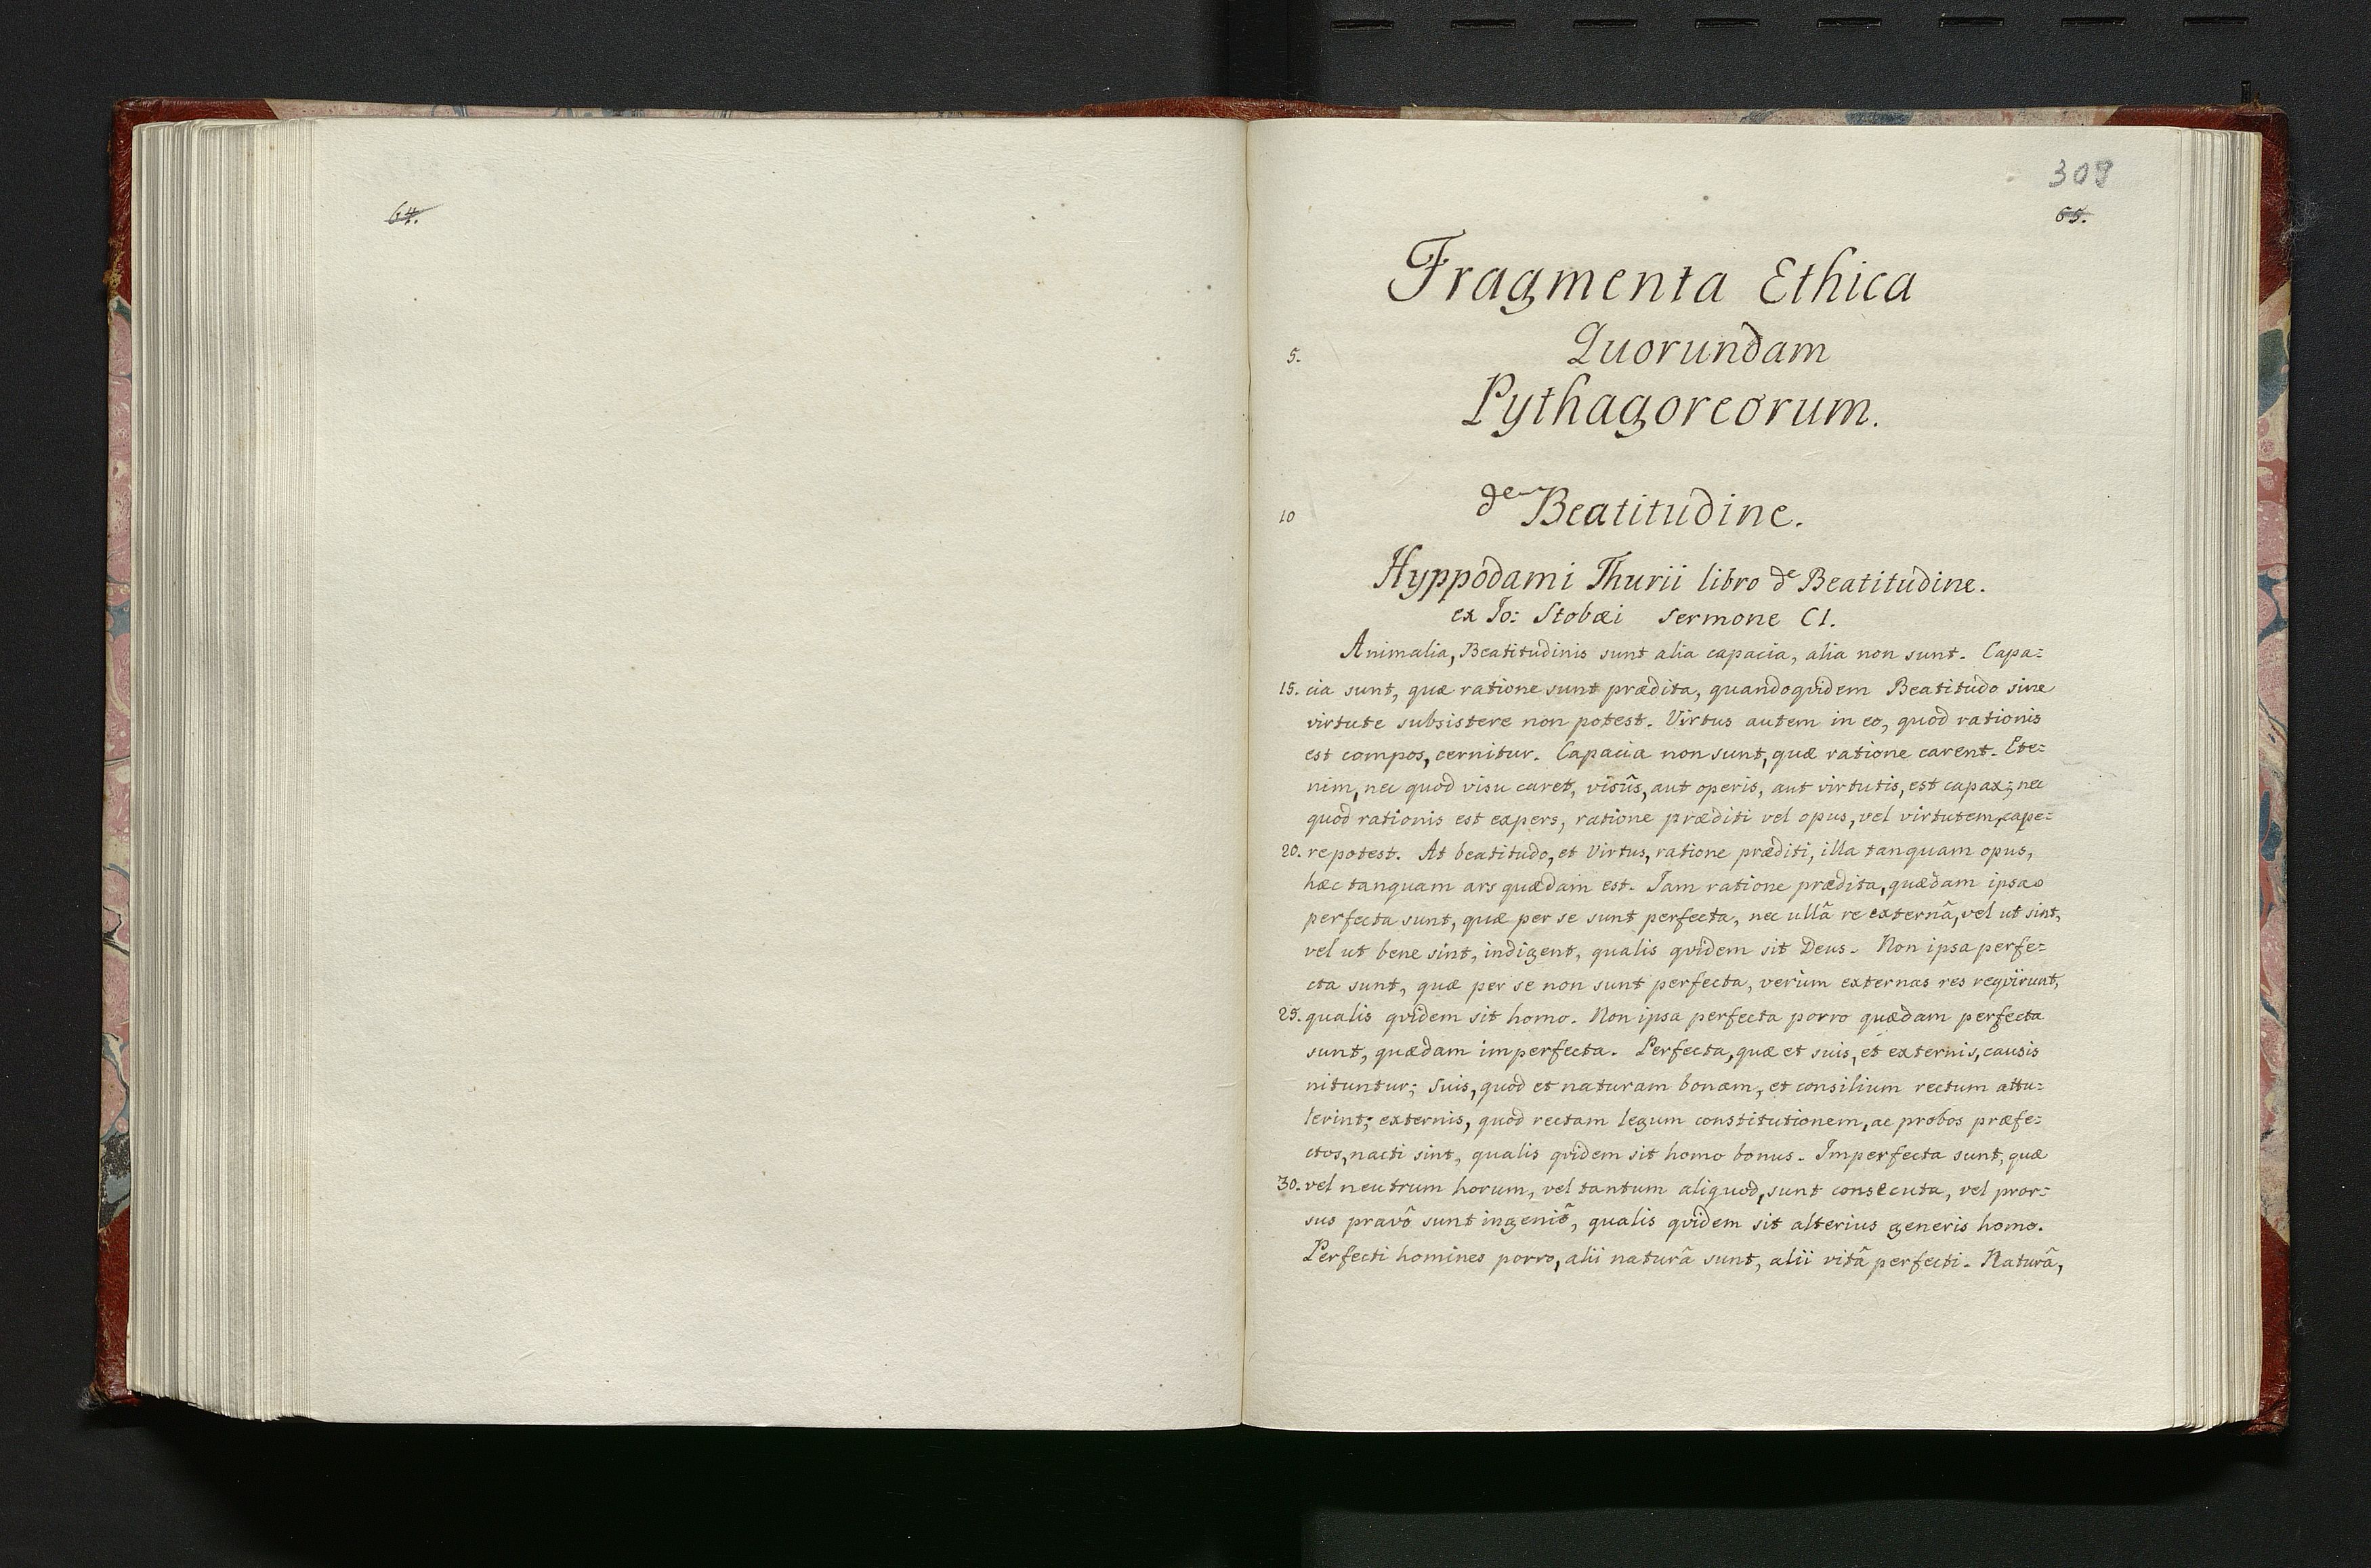 64.
309
65.
Fragmenta Ethica
5. Quorundam
Pythagoreorum.
10 de Beatitudine.
Hyppodami Thurii libro de Beatitudine.
ex Jo: Stobæi Sermone CI.
Animalia, Beatitudinis sunt alia capacia, alia non sunt. Capa=
15. cia sunt, quæ ratione sunt prædita, quandoquidem Beatitudo sine
virtute subsistere non potest. Virtus autem in eo, quod rationis
est compos, cernitur. Capacia non sunt, quæ ratione carent. Ete=
nim, nec quod visu caret, visûs, aut operis, aut virtutis, est capax; nec
quod rationis est expers, ratione præditi vel opus, vel virtutem, cape=
20. re potest. At beatitudo, et Virtus, ratione præditi, illa tanquam opus,
hæc tanquam ars quædam est. Jam ratione prædita, quædam ipsa
perfecta sunt, quæ per se sunt perfecta, nec ullâ re externâ, vel ut sint,
vel ut bene sint, indigent, qualis quidem sit Deus. Non ipsa perfe=
cta sunt, quæ per se non sunt perfecta, verùm externas res requirunt,
25. qualis quidem sit homo. Non ipsa perfecta porro quædam perfecta
sunt, quædam imperfecta. Perfecta, quæ et suis, et externis, causis
nituntur; suis, quod et naturam bonam, et consilium rectum attu=
lerint; externis, quod rectam legum constitutionem, ac probos præfe=
ctos, nacti sint, qualis quidem sit homo bonus. Imperfecta sunt, quæ
30. vel neutrum horum, vel tantum aliquod, sunt consecuta, vel pror=
sus pravô sunt ingeniô, qualis quidem sit alterius generis homo.
Perfecti homines porro, alii naturâ sunt, alii vitâ perfecti. Naturâ,